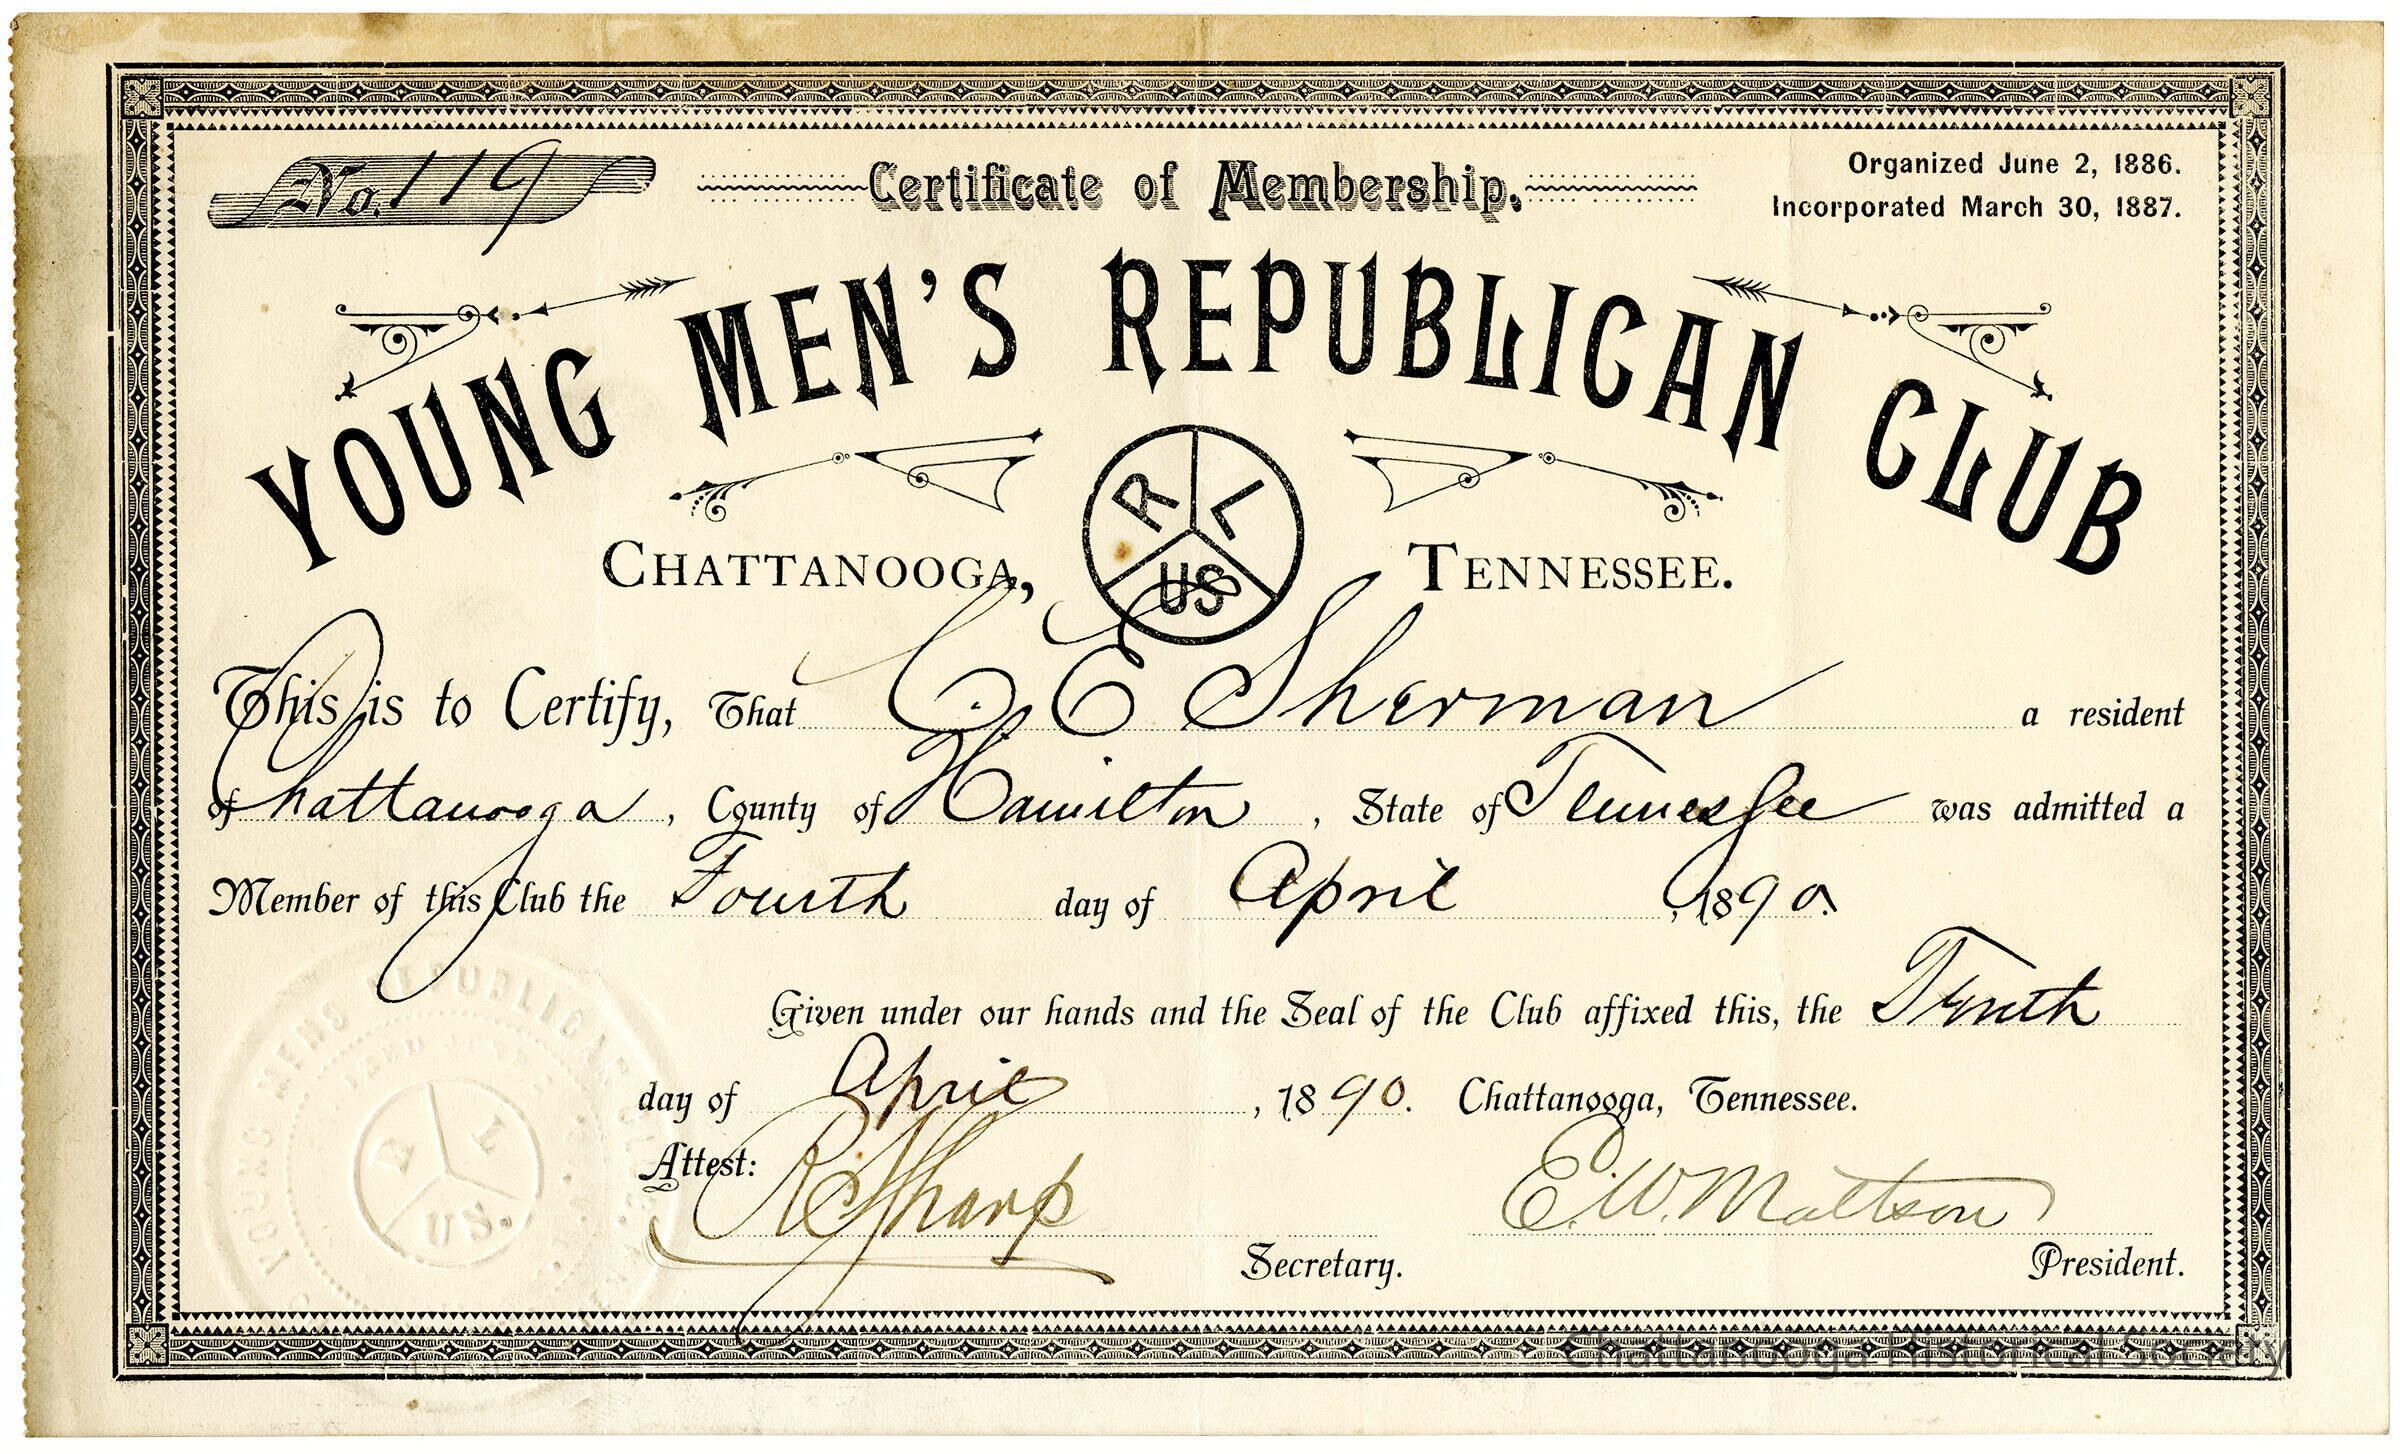 No. 119
Certificate of Membership.
Organized June 2, 1886.
Incorporated March 30, 1887.
YOUNG MEN'S REPUBLICAN CLUB
R L
US
CHATTANOOGA, TENNESSEE.
This is to Certify, That C. E Sherman a resident
of Chattanooga, County of Hamilton, State of Tennessee was admitted a
Member of this Club the Fourth day of April, 1890.
Given under our hands and the Seal of the Club affixed this, the Tenth
day of April, 1890. Chattanooga, Tennessee.
Attest: Sharp E. W. Mattson
Secretary. President.
YOUNG MENS REPUBLICAN
R L
US.
Chattanooga Historical Society